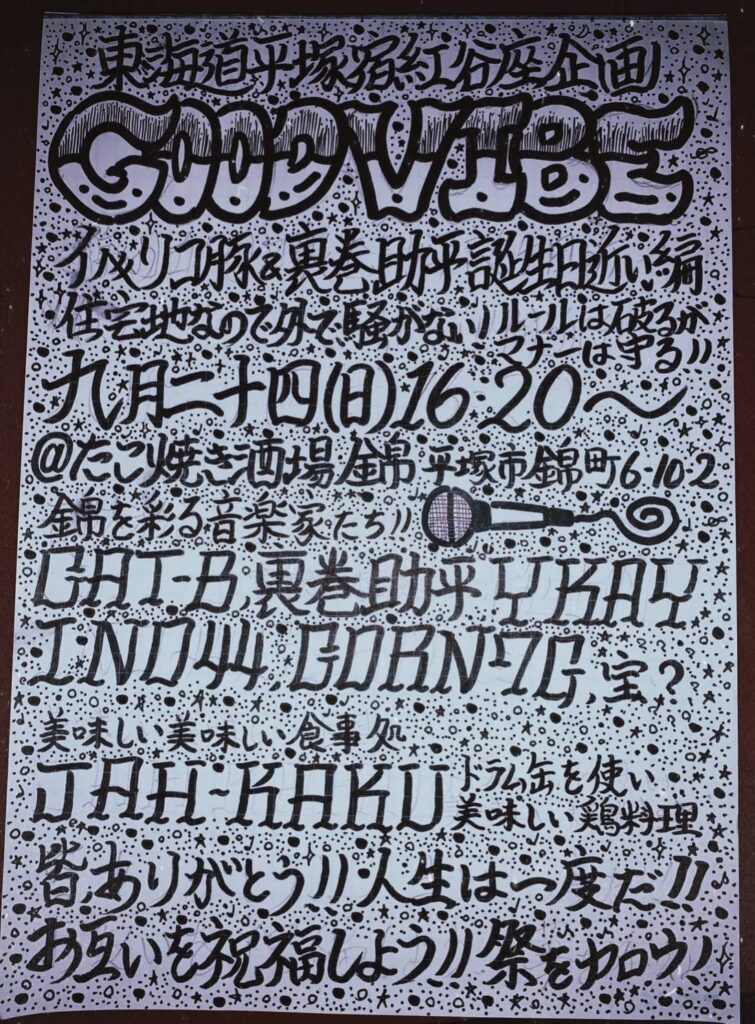 東海道平塚宿紅谷座企画
GOOD VIBE
イメリコ豚&裏巻助平誕生日近い編
住宅地なので外で騒がない!!ルールは破るが
マナーは守る!!
九月二十四(日)16・20〜
@たこ焼き酒場 錦 平塚市錦町6-10-2
錦を彩る音楽家たち!!
CAT-B,裏巻助平,Y KAY
INO44,CORN-7G,宝?
美味しい美味しい食事処
JAH-KAKU ドラム缶を使い
美味しい鶏料理
皆,ありがとう!!人生は一度だ!!
お互いを祝福しよう!!祭を